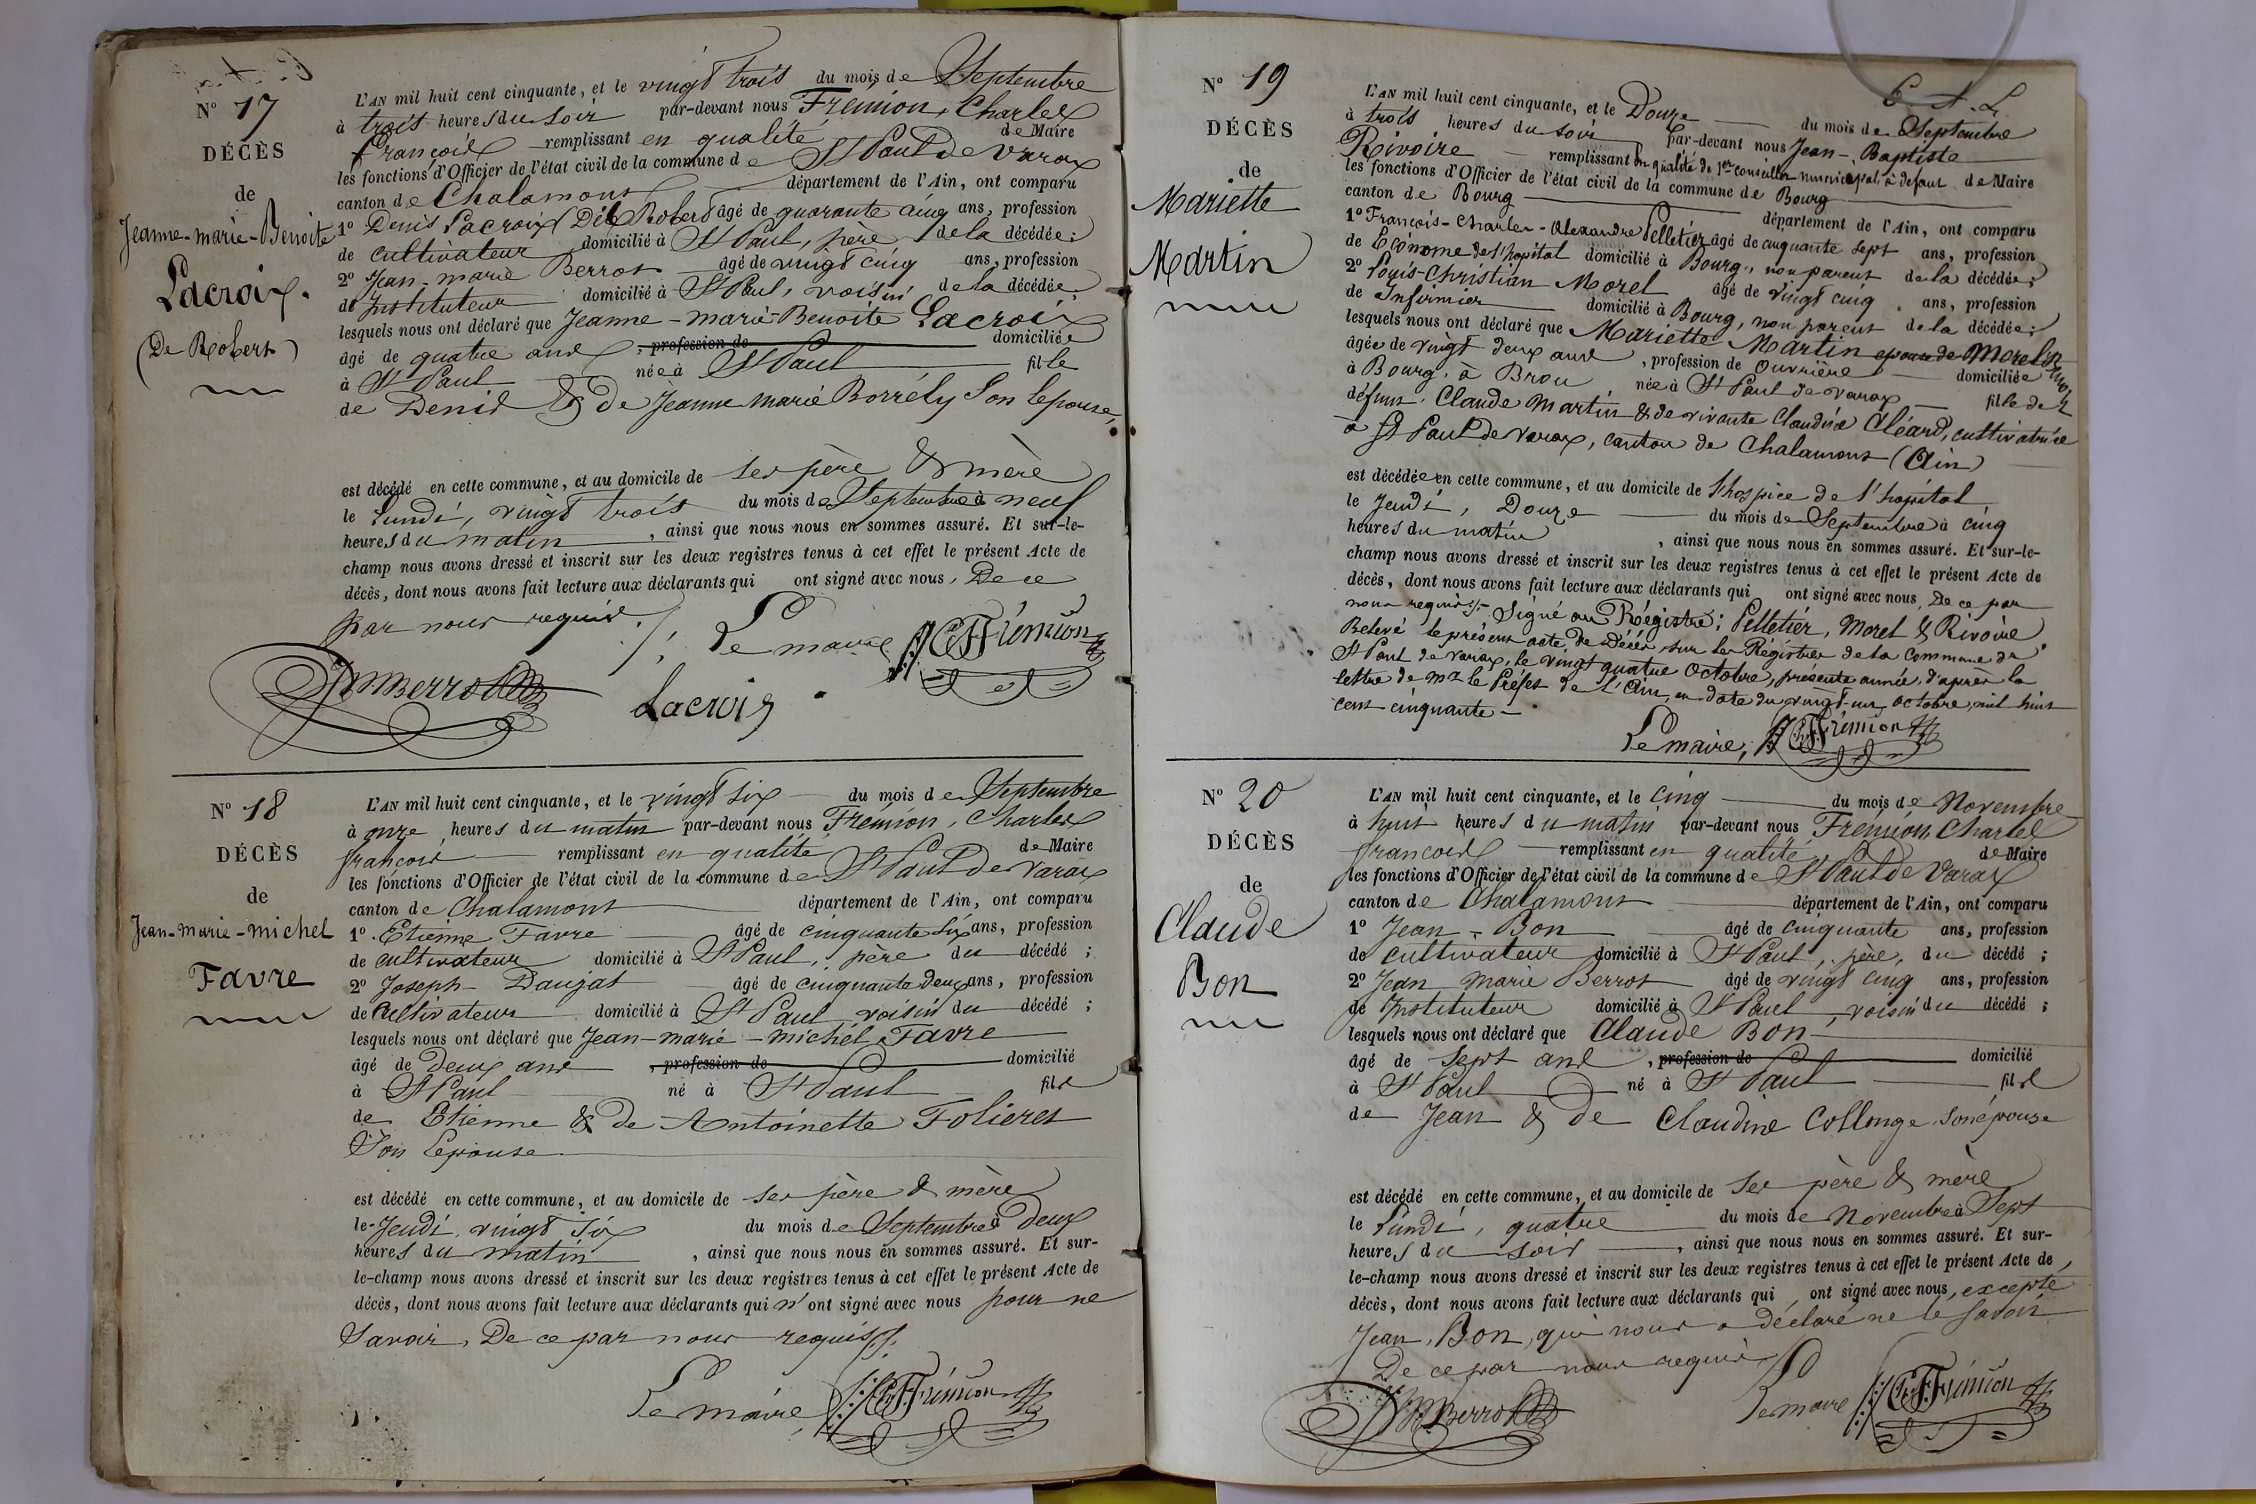 N° 17
DÉCÈS
de
Jeanne-marie-Benoite
Lacroix.
(De Robert)
L'AN mil huit cent cinquante, et le vingt trois du mois de Septembre
à trois heures du soir par-devant nous Fremion, Charles
françois remplissant en qualité de Maire
les fonctions d'Officier de l'état civil de la commune de St Paul de Varax
canton de Chalamont département de l'Ain, ont comparu
1° Denis Lacroix Dit Robert âgé de quarante cinq ans, profession
de cultivateur domicilié à St Paul, père de la décédée;
2° Jean-marie Berrot âgé de vingt cinq ans, profession
de Instituteur domicilié à St Paul, voisin de la décédée,
lesquels nous ont déclaré que Jeanne-marie-Benoite Lacroix
âgé de quatre ans, profession de domiciliée
à St Paul née à St Paul fille
de Denis & de Jeanne Marie Borrély Son Epouse,
est décédé en cette commune, et au domicile de ses père & mère
le Lundi, vingt trois du mois de Septembre à neuf
heures du matin, ainsi que nous nous en sommes assuré. Et sur-le-
champ nous avons dressé et inscrit sur les deux registres tenus à cet effet le présent Acte de
décès, dont nous avons fait lecture aux déclarants qui ont signé avec nous, De ce
par nous requis.
Le maire Ch. F. Frémion
JM Berrot
Lacroix
N° 18
DÉCÈS
de
Jean-marie-michel
Favre
L'AN mil huit cent cinquante, et le vingt six du mois de Septembre
à onze heures du matin par-devant nous Frémion, Charles
françois remplissant en qualité de Maire
les fonctions d'Officier de l'état civil de la commune de St Paul de Varax
canton de Chalamont département de l'Ain, ont comparu
1° Etienne Favre âgé de cinquante six ans, profession
de cultivateur domicilié à St Paul, père du décédé;
2° Joseph Daujat âgé de cinquante deux ans, profession
de cultivateur domicilié à St Paul voisin du décédé;
lesquels nous ont déclaré que Jean-marie-michel Favre
âgé de Deux ans, profession de domicilié
à St Paul né à St Paul fils
de Etienne & de Antoinette Folieret
Son Epouse
est décédé en cette commune, et au domicile de ses père & mère
le Jeudi vingt Six du mois de Septembre à deux
heures du matin, ainsi que nous nous en sommes assuré. Et sur-
le-champ nous avons dressé et inscrit sur les deux registres tenus à cet effet le présent Acte de
décès, dont nous avons fait lecture aux déclarants qui n'ont signé avec nous pour ne
Savoir, De ce par nous requis.
Le maire, Ch. F. Frémion
N° 19
DÉCÈS
de
Mariette
Martin
L'AN mil huit cent cinquante, et le Douze du mois de Septembre
à trois heures du soir par-devant nous Jean-Baptiste
Rivoire remplissant en qualité de 1er conseiller municipal à défaut de Maire
les fonctions d'Officier de l'état civil de la commune de Bourg
canton de Bourg département de l'Ain, ont comparu
1° François-Charles-Alexandre Pelletier âgé de cinquante sept ans, profession
de Econome de l'hôpital domicilié à Bourg, non parent de la décédée;
2° Louis-Christian Morel âgé de vingt cinq ans, profession
de Infirmier domicilié à Bourg, non parent de la décédée;
lesquels nous ont déclaré que Mariette Martin epouse de Morel
âgée de vingt deux ans, profession de Ouvrière domiciliée
à Bourg, à Brou née à St Paul de Varax fille de
défunt Claude Martin & de vivante Claudine Cléard, cultivatrice
à St Paul de Varax, canton de Chalamont (Ain)
est décédée en cette commune, et au domicile de l'hospice de l'hopital
le Jeudi, Douze du mois de Septembre à cinq
heures du matin, ainsi que nous nous en sommes assuré. Et sur-le-
champ nous avons dressé et inscrit sur les deux registres tenus à cet effet le présent Acte de
décès, dont nous avons fait lecture aux déclarants qui ont signé avec nous, De ce par
nous requis. Signé au Régistre: Pelletier, Morel & Rivoire
Relevé le présent acte de Décès, sur les Régistres de la Commune de
St Paul de Varax, le vingt quatre Octobre, présente année, d'après la
lettre de Mr le Préfet de l'Ain, en date du vingt-un octobre, mil huit
cent cinquante
Le maire, Ch. F. Frémion
N° 20
DÉCÈS
de
Claude
Bon
L'AN mil huit cent cinquante, et le cinq du mois de Novembre
à huit heures du matin par-devant nous Frémion, Charles
françois remplissant en qualité de Maire
les fonctions d'Officier de l'état civil de la commune de St Paul de Varax
canton de Chalamont département de l'Ain, ont comparu
1° Jean-Bon âgé de cinquante ans, profession
de cultivateur domicilié à St Paul, père, du décédé;
2° Jean Marie Berrot âgé de vingt cinq ans, profession
de Instituteur domicilié à St Paul, voisin du décédé;
lesquels nous ont déclaré que Claude Bon
âgé de sept ans, profession de domicilié
à St Paul né à St Paul fils
de Jean & de Claudine Collonge son épouse
est décédé en cette commune, et au domicile de ses père & mère
le Lundi, quatre du mois de Novembre à Sept
heures du soir, ainsi que nous nous en sommes assuré. Et sur-
le-champ nous avons dressé et inscrit sur les deux registres tenus à cet effet le présent Acte de
décès, dont nous avons fait lecture aux déclarants qui ont signé avec nous, excepté
Jean, Bon, qui nous a déclaré ne le Savoir
De ce par nous requis
Le maire Ch. F. Frémion
JM Berrot